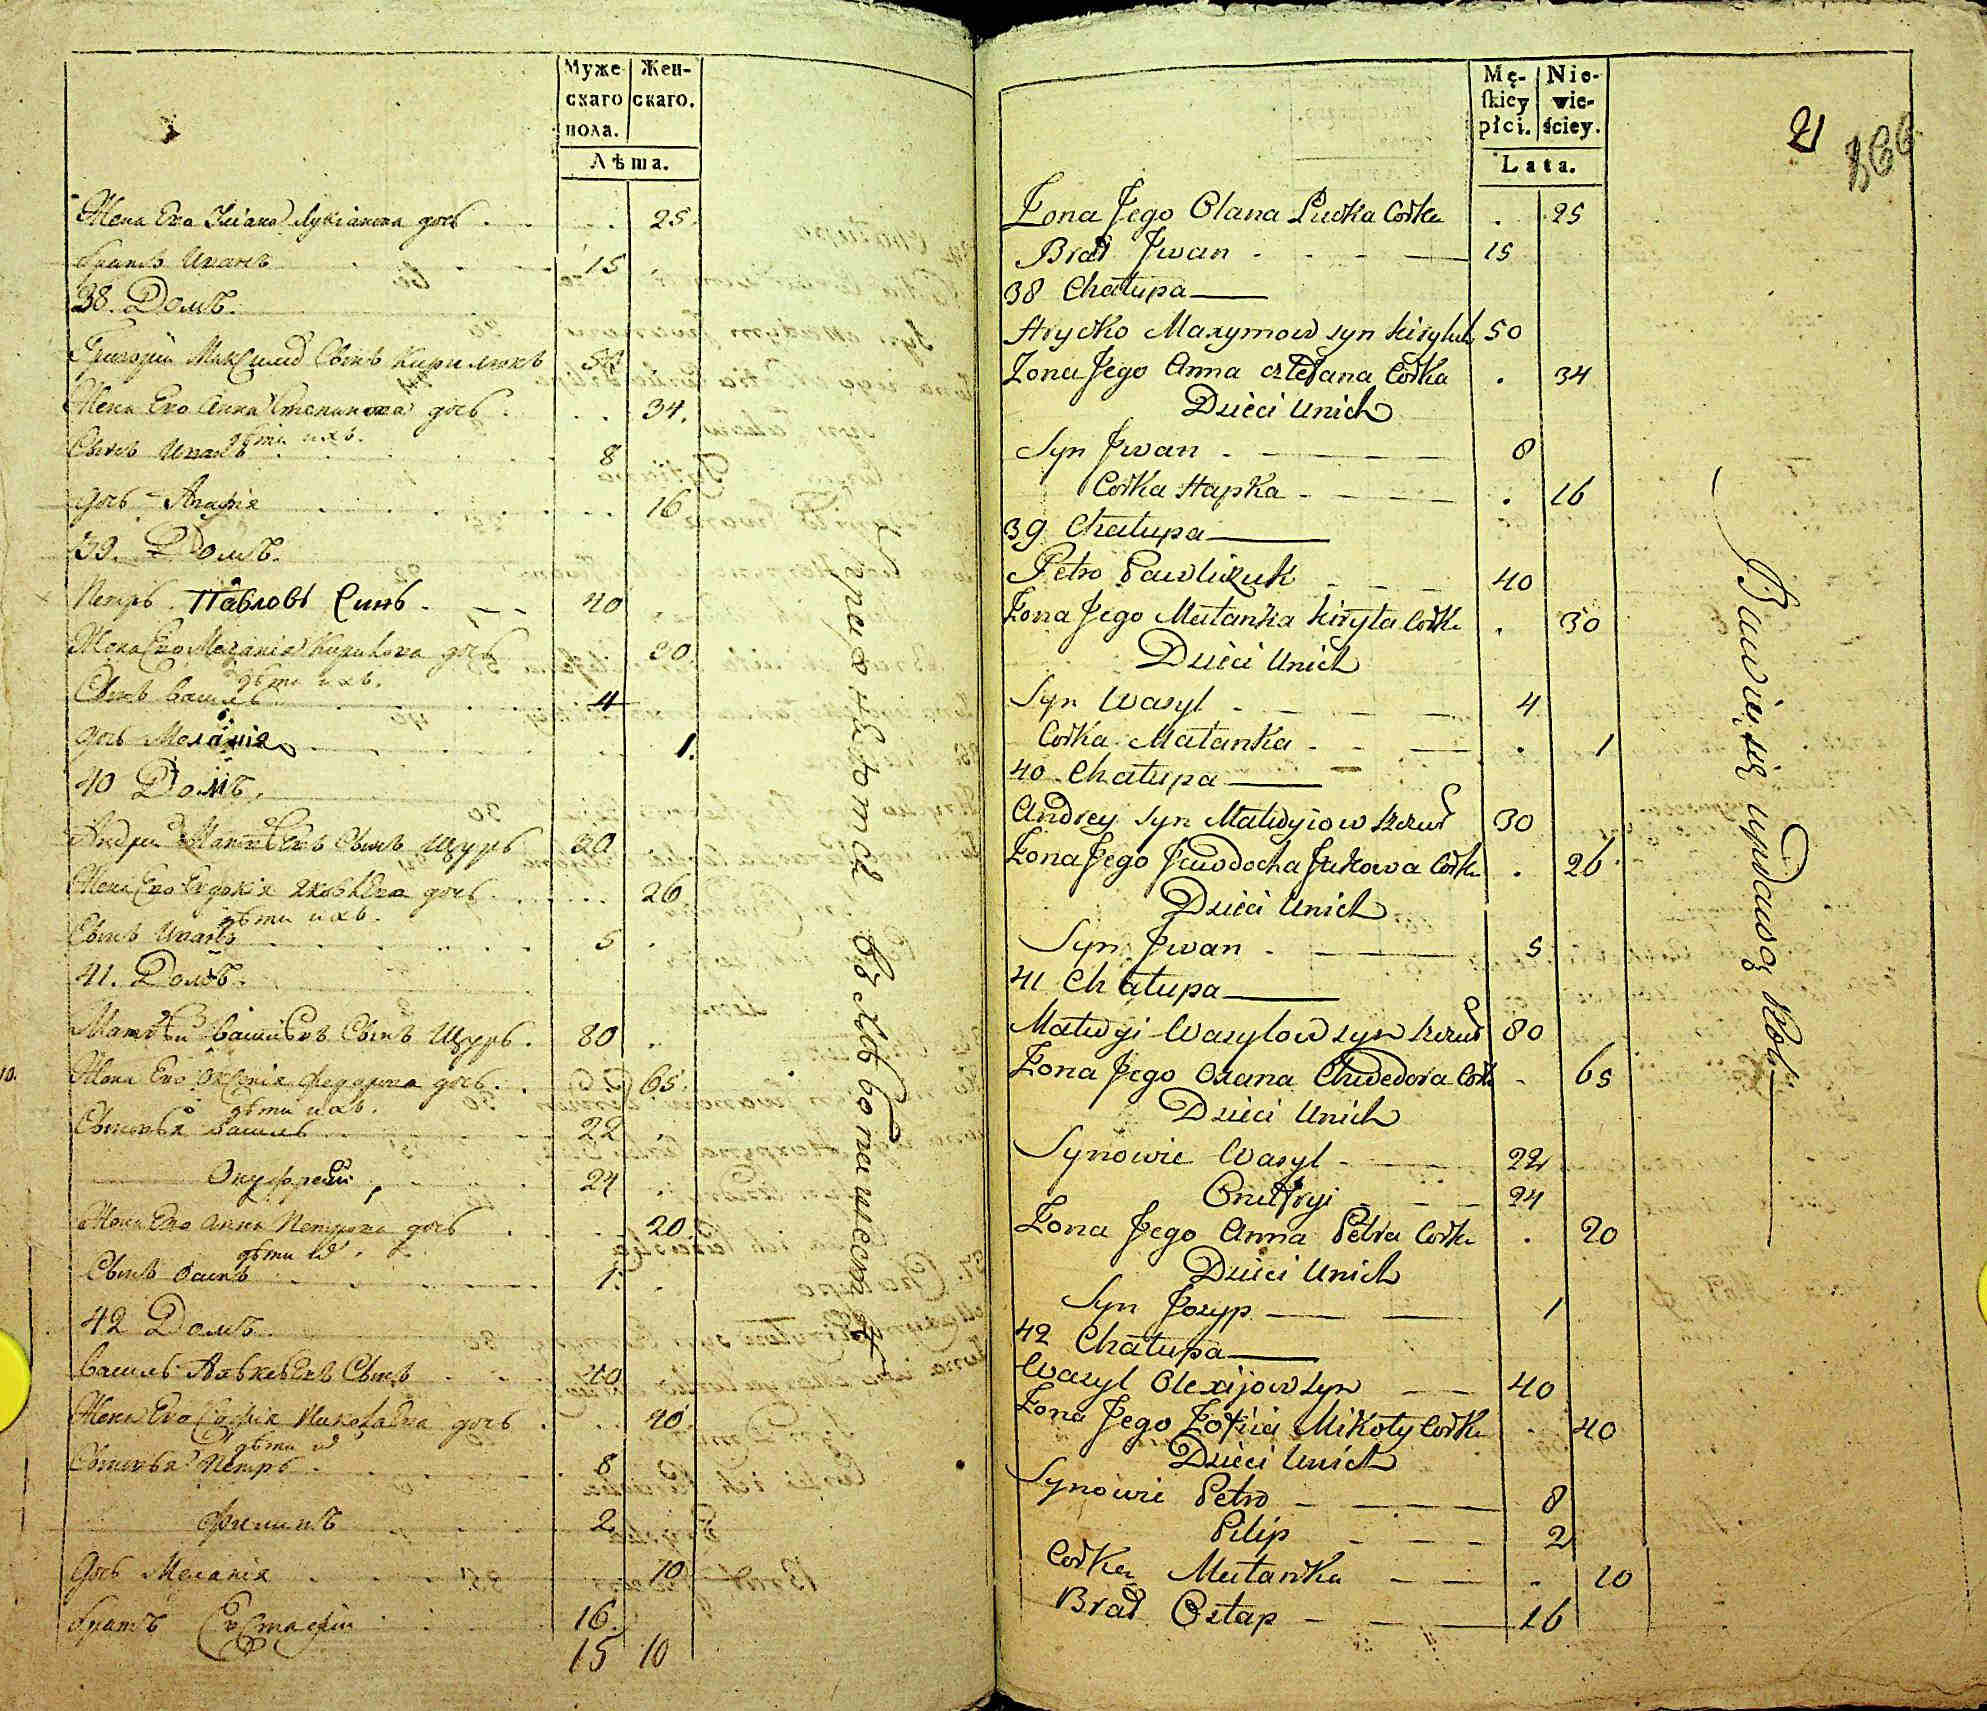 Муже- Жен-
скаго скаго.
пола.
Лѣта.
Жена Его Уліана Лукіанова дочь 25
братъ Иванъ 15
38. Домъ.
Григорій Максимов Сынъ Кирилюкъ 50
Жена Его Анна Степанова дочь 34.
дѣти ихъ.
Сынъ Иванъ 8
дочь Агафія 16
39. Домъ.
Петръ Павловъ Синъ 40
Жена Его Меланія Кирилова дочь 30.
дѣти ихъ.
Сынъ Василь 4
дочь Меланія 1.
40 Домъ.
Андрей Матвѣевъ Сынъ Щуръ 30
Жена Его Евдокія Яковлева дочь 26
дѣти ихъ.
Сынъ Иванъ 5
41. Домъ.
Матвѣй Васильевъ Сынъ Щуръ. 80
Жена Его Оксенія Федорова дочь. 65.
дѣти ихъ.
Сыновья Василь 22
Онуфрей 24
Жена Его Анна Петрова дочь 20.
дѣти их.
Сынъ Осипъ 1.
42 Домъ.
Василь Алексѣевъ Сынъ 40
Жена Его Софія Николаевна дочь 40.
дѣти их
Сыновья Петръ 8
Филипъ 2.
дочь Меланія 10
братъ Евстафій 16.
15 10
Упражняются въ хлѣбопашествѣ
Mę- Nie-
skiey wie-
płci. ściey.
Lata.
21
Żona Jego Olana Lucka Corka 25
Brat Jwan 15
38 Chałupa
Hrycko Maxymow syn 50
Żona Jego Anna Corka 34
Dzieci Unich
Syn Jwan 8
Corka Hapka 16
39 Chałupa
Petro Pawluzuk 40
Żona Jego Małanka Kiryła Corka 30
Dzieci Unich
Syn Wasyl 4
Corka Małanka 1
40 Chałupa
Andrey Syn Matwyiow Szczur 30
Żona Jego Jewdocha Jakowa Corka 26
Dzieci Unich
Syn Jwan 5
41 Chałupa
Matwyi Wasylow syn Szczur 80
Żona Jego Oxana Chwedora Corka 65
Dzieci Unich
Synowie Wasyl 22
Onufryi 24
Żona Jego Anna Petra Corka 20
Dzieci Unich
Syn Jozyp 1
42 Chałupa
Wasyl Olexijow syn 40
Żona Jego Zofia Mikoły Corka 40
Dzieci Unich
Synowie Petro 8
Pilip 2
Corka Małanka 10
Brat Ostap 16
Bawią się uprawą Roli